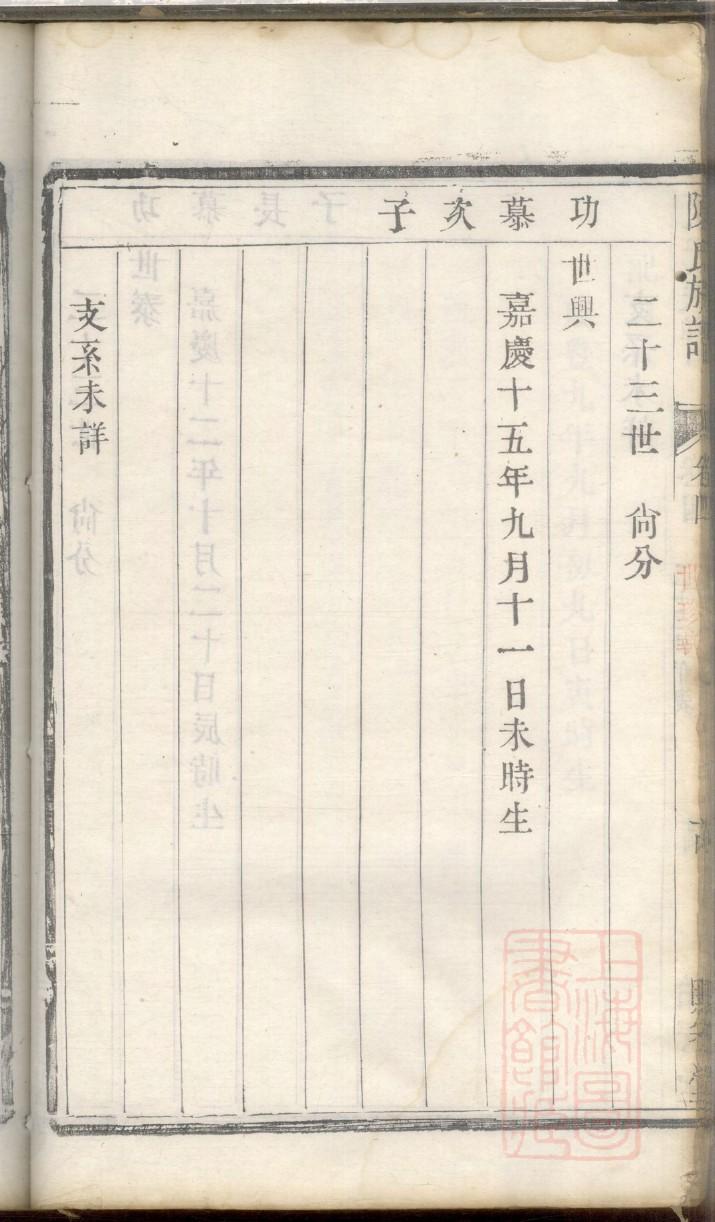 陳氏族譜 卷四
二十三世 尙分
功慕次子
世興
嘉慶十五年九月十一日未時生
支系未詳
上海圖書館藏